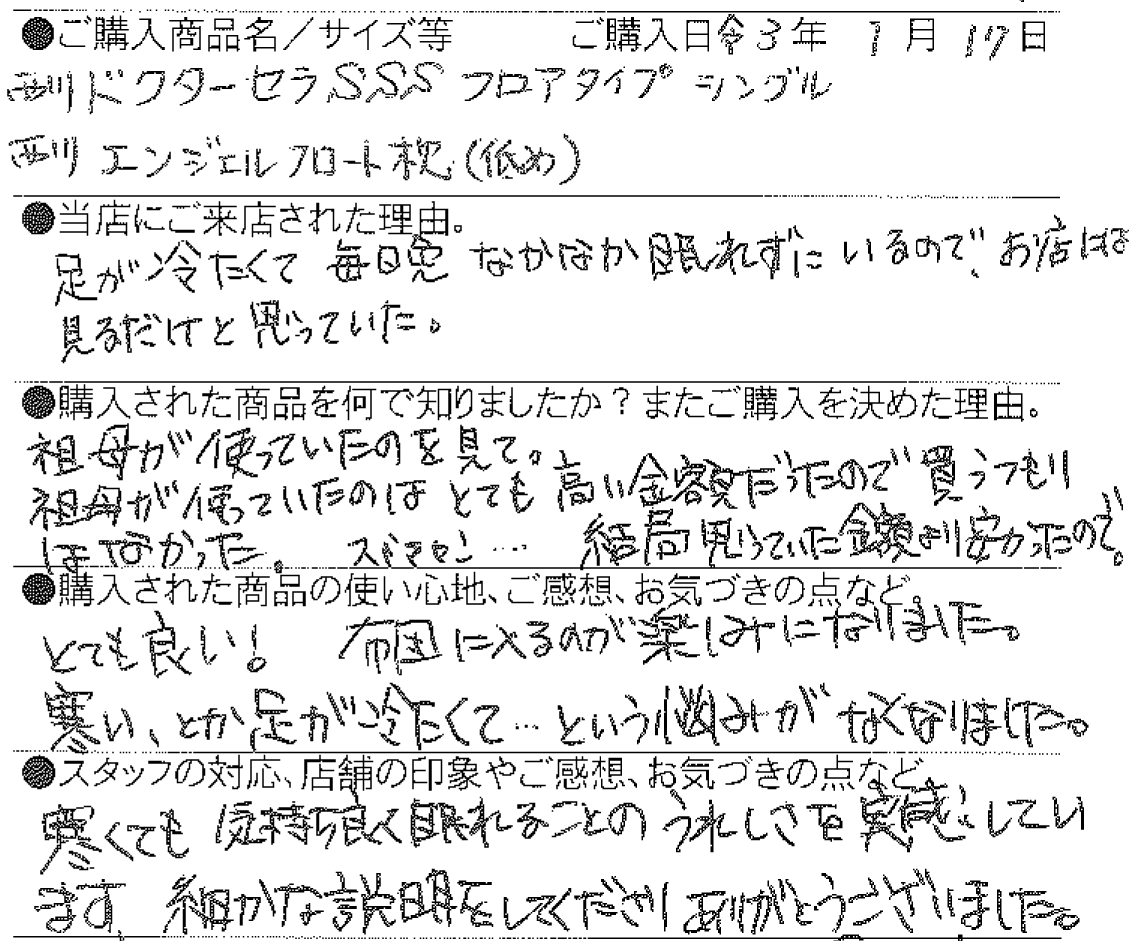 ●ご購入商品名／サイズ等 ご購入日令3年 1月 17日
西川ドクターセラSSS フロアタイプ シングル
西川 エンジェルフロート枕（低め）
●当店にご来店された理由。
足が冷たくて 毎日晩 なかなか眠れずに いるので、お店はは
見るだけと思っていた。
●購入された商品を何で知りましたか？またご購入を決めた理由。
祖母が使っていたのを見て。
祖母が使っていたのは とても 高い金額だったので 買うつもり
はなかった。 結局思っていた金額より安かったので。
●購入された商品の使い心地、ご感想、お気づきの点など。
とても良い！ 布団に入るのが楽しみになりました。
寒い、とか足が冷たくて…という悩みが なくなりました。
●スタッフの対応、店舗の印象やご感想、お気づきの点など。
寒くても 気持ち良く眠れることの うれしさを 実感してい
ます。細かな説明をしてくださり ありがとうございました。